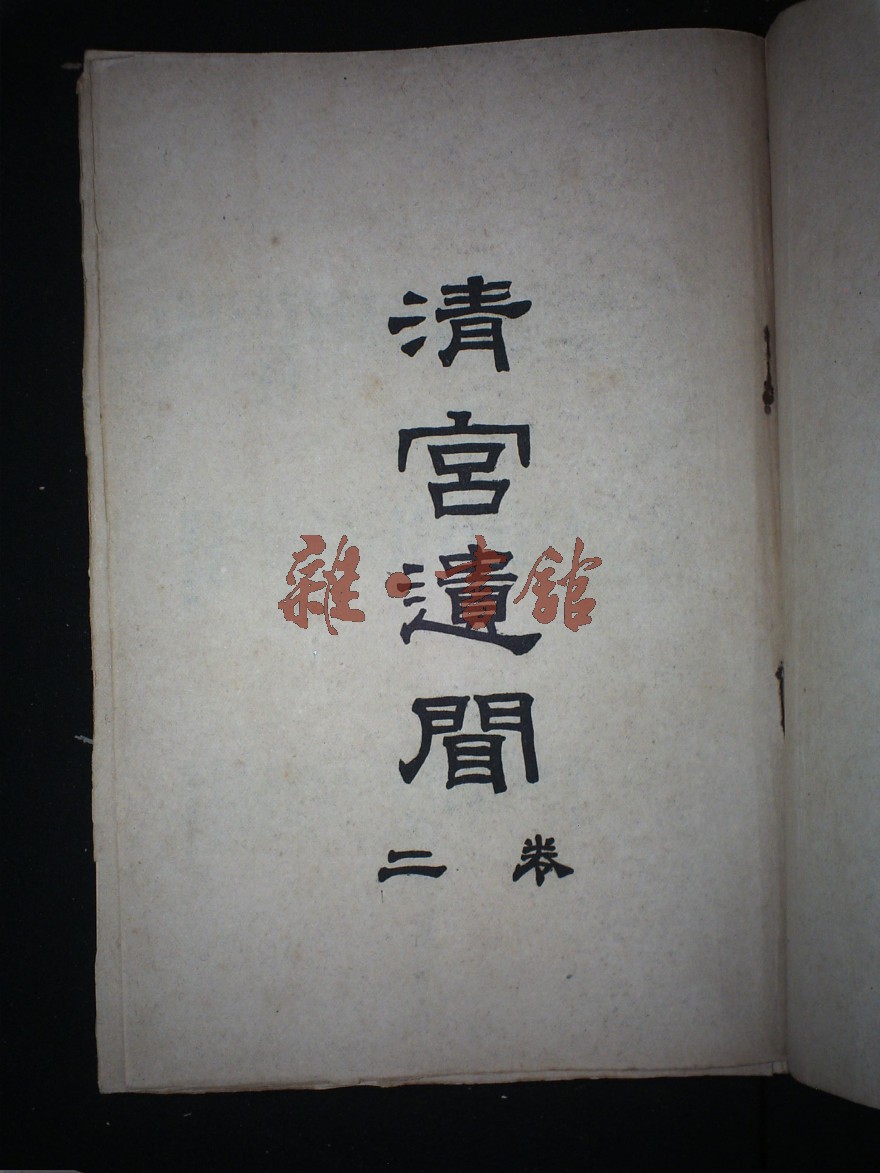 清宮遺聞
卷二
雜·書館